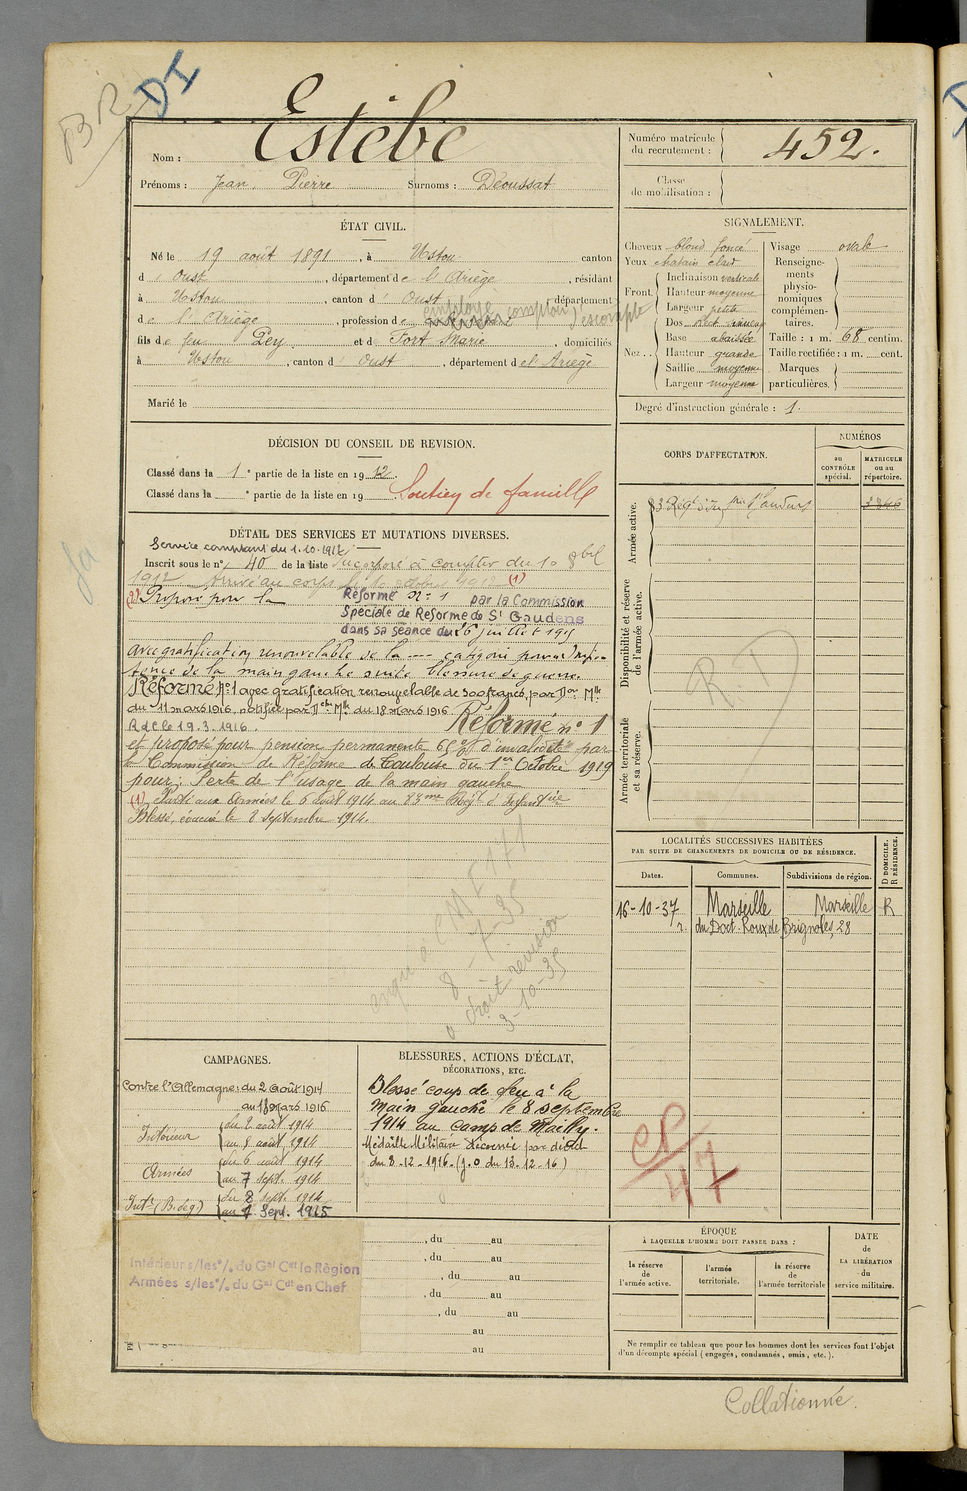 BR
DI
Nom : Estèbe
Prénoms : Jean, Pierre Surnoms : Déoussat
Numéro matricule du recrutement : 452.
Classe de mobilisation :
ÉTAT CIVIL.
Né le 19 août 1891, à Ustou canton
d' Oust, département de l'Ariège, résidant
à Ustou, canton d' Oust, département
de l'Ariège, profession de employé comptoir d'escompte
fils de feu Pey et de Fort Marie, domiciliés
à Ustou, canton d' Oust, département de l'Ariège
Marié le
SIGNALEMENT.
Cheveux blond foncé
Yeux chatain clair
Front Inclinaison verticale
Hauteur moyenne
Largeur petite
Nez Dos rect. sinueux
Base abaissée
Hauteur grande
Saillie moyenne
Largeur moyenne
Visage ovale
Renseignements physionomiques complémentaires.
Taille : 1 m. 68 centim.
Taille rectifiée : 1 m. cent.
Marques particulières.
Degré d'instruction générale : 1.
DÉCISION DU CONSEIL DE REVISION.
Classé dans la 1e partie de la liste en 1912.
Classé dans la e partie de la liste en 19
Soutien de famille
DÉTAIL DES SERVICES ET MUTATIONS DIVERSES.
Service comptant du 1.10.1912
Inscrit sous le n° 40 de la liste Incorporé à compter du 10 8bre
1912 arrivé au corps le 10 octobre 1912 (1)
(2) Proposé pour la Réforme n° 1 par la Commission
Spéciale de Réforme de St Gaudens
dans sa séance du 16 juillet 1915
avec gratification renouvelable de la --- catégorie pour Impotence
de la main gauche suite blessure de guerre.
Réformé N°1 avec gratification renouvelable de 300 francs, par Don Mlle
du 11 mars 1916, notifiée par Dche Mlle du 18 mars 1916
R d C le 19.3.1916. Réformé n° 1
et proposé pour pension permanente 65 % d'invalidité par
la Commission de Réforme de Toulouse du 1er Octobre 1919
pour : Perte de l'usage de la main gauche
(1) Parti aux Armées le 6 août 1914 au 83me Régt d'Infanterie
Blessé, évacué le 8 septembre 1914.
8-7-35
droit revision
3-10-35
CORPS D'AFFECTATION.
NUMÉROS
au CONTRÔLE spécial.
MATRICULE ou au répertoire.
Armée active.
83 Régt d'Infrie St Gaudens
Disponibilité et réserve de l'armée active.
RD
Armée territoriale et sa réserve.
LOCALITÉS SUCCESSIVES HABITÉES
PAR SUITE DE CHANGEMENTS DE DOMICILE OU DE RÉSIDENCE.
D DOMICILE. R RÉSIDENCE.
Dates. Communes. Subdivisions de région.
16-10-37 Marseille Marseille R
r. du Doct. Roux de Brignoles, 28
CP
47
CAMPAGNES.
Contre l'Allemagne : du 2 août 1914
au 18 mars 1916
Intérieur du 2 août 1914
au 5 août 1914
Armées du 6 août 1914
au 7 sept. 1914
Intr (B. de g) du 8 sept. 1914
au 7 Sept. 1915
Intérieur s/les o/. du Gal Cdt la Région
Armées s/les o/. du Gal Cdt en Chef
BLESSURES, ACTIONS D'ÉCLAT,
DÉCORATIONS, ETC.
Blessé coup de feu à la
main gauche le 8 septembre
1914 au camp de Mailly.
Médaille Militaire décernée par décret
du 8-12-1916. (J.O du 13-12-16)
, du au
, du au
, du au
, du au
, du au
au
au
ÉPOQUE
À LAQUELLE L'HOMME DOIT PASSER DANS :
la réserve de l'armée active.
l'armée territoriale.
la réserve de l'armée territoriale
DATE de LA LIBÉRATION du service militaire.
Ne remplir ce tableau que pour les hommes dont les services font l'objet
d'un décompte spécial (engagés, condamnés, omis, etc.).
Collationné.